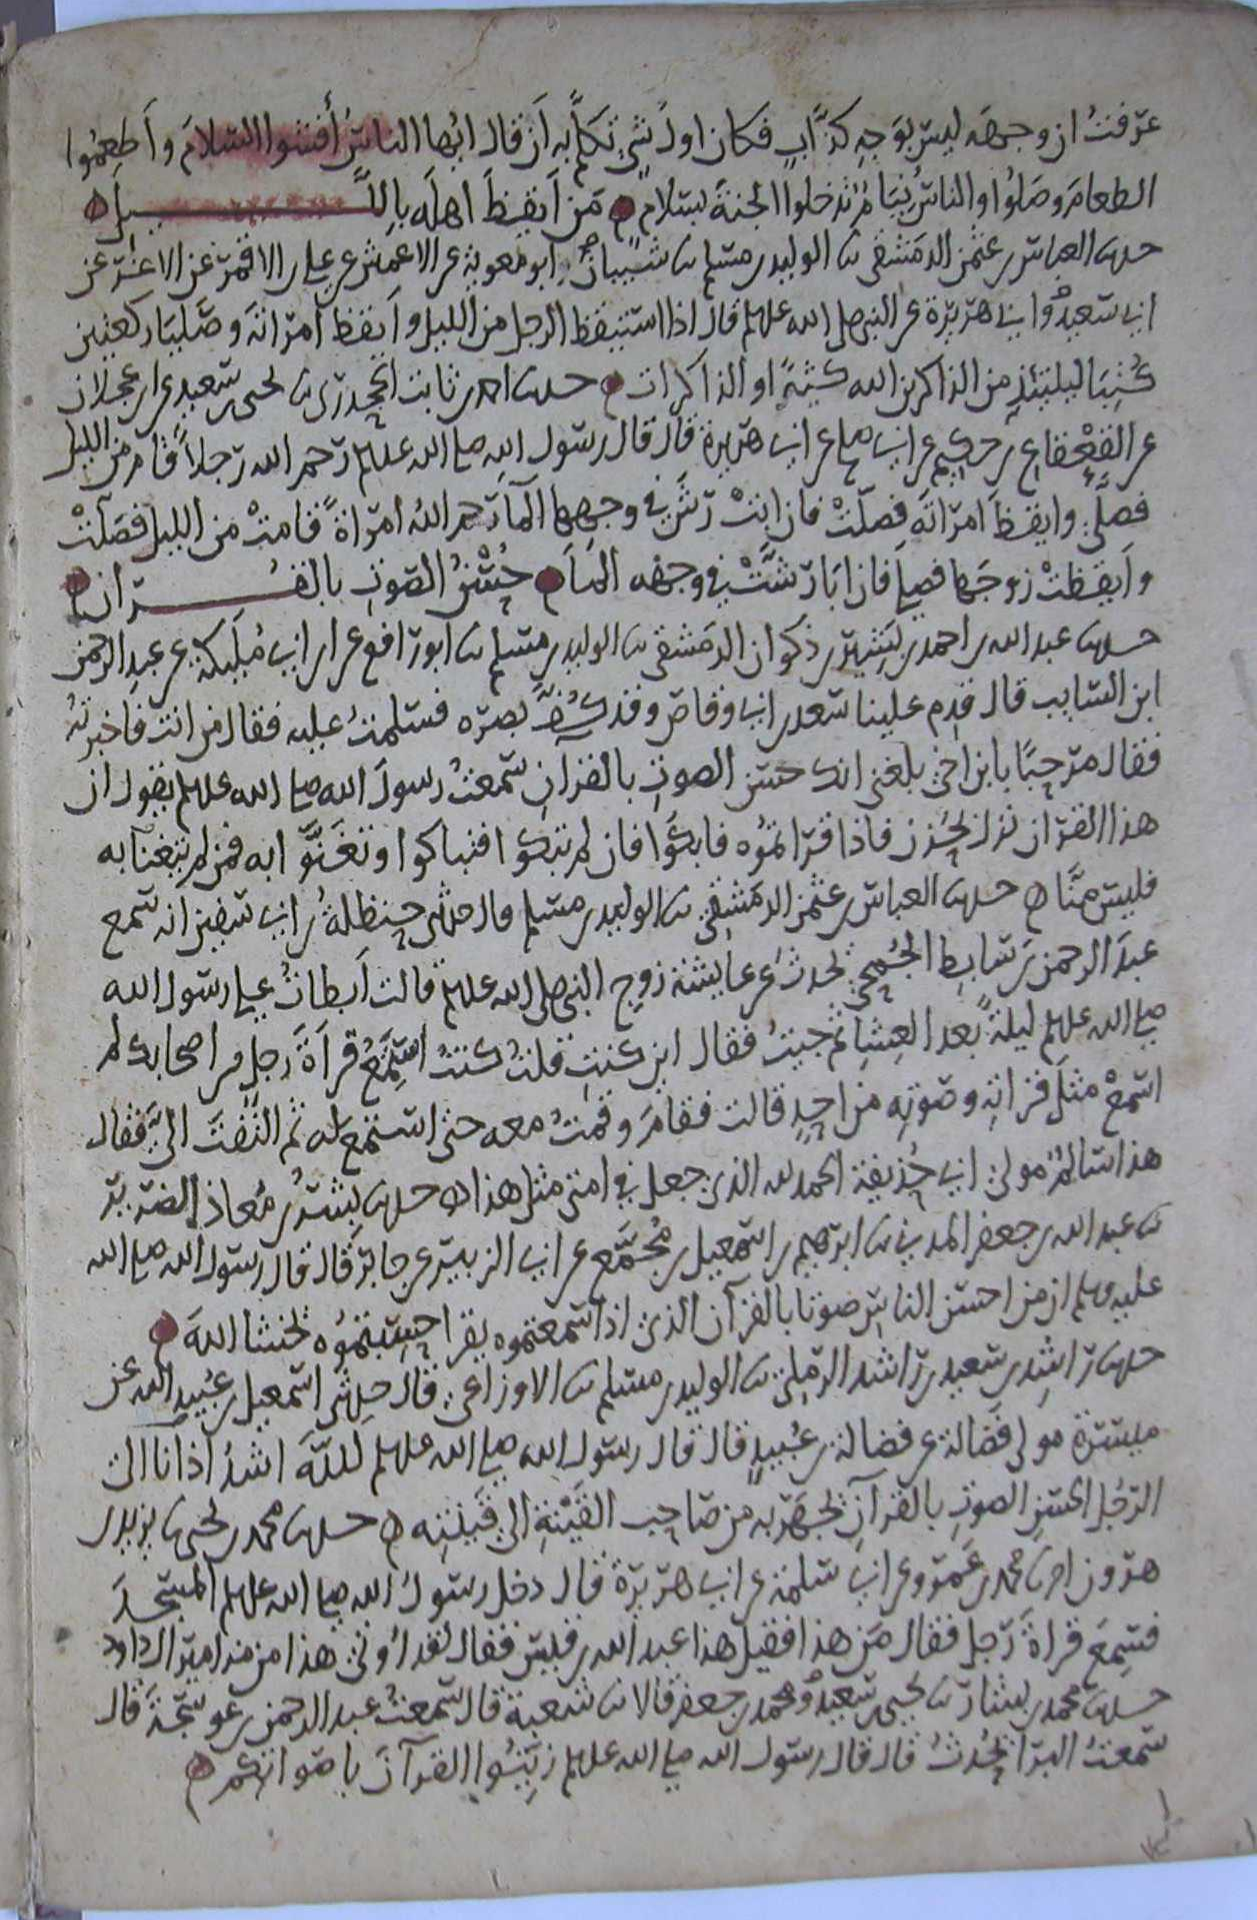 عرفتُ ان وجهه ليس بوَجهِ كذَّابٍ فكان اول شي تكلم به ان قال ايها الناسُ أفشوا السلامَ وأَطعِمُوا
الطعامَ وصَلُوا والناسُ نيَام تدخلوا الجنةَ بسلامٍ مَن أيقظَ اهلَه بالليل
حدثنا العباس بن عثمن الدمشقي ثنا الوليد بن مسلم ثنا شيبان ابو معوية عن الاعمش عن علي بن الاقمر عن الاغر عن
ابي سعيد وابي هريرة عن النبي صلى الله عليه وسلم قال اذا استيقظ الرجل من الليل وأيقظ امرأته وصَليَا ركعتين
كُتِبَا ليلتئذٍ من الذاكرين الله كثيرًا والذاكرات حدثنا احمد بن ثابت الجحدري ثنا يحيى بن سعيد عن ابن عجلان
عن القعقاع بن حكيم عن ابي صالح عن ابي هريرة قال قال رسول الله صلى الله عليه وسلم رحم الله رجلاً قام من الليل
فصلى وايقظَ امرأتَه فصلَّتْ فان ابَتْ رَشَّ في وجهها الما رحم اللهُ امرأةً قامتْ من الليل فصَلتْ
وأيقظتْ زوجَها فصلَّى فان ابَا رشَّتْ في وجهه الماَ حُسْنُ الصوتِ بالقران
حدثنا عبد الله بن احمد بن بَشِير بن ذكوان الدمشقي ثنا الوليد بن مسلم ثنا ابو رافع عن ابن ابي مُلَيكة عن عبد الرحمن
ابن السايب قال قدِم علينا سعد بن ابي وقاص وقد كُفَّ بصره فسلمتُ عليه فقال من انت فاخبرتُه
فقال مرحبًا بابن اخي بلغني انك حسن الصوتِ بالقرانِ سمعتُ رسولَ الله صلى الله عليه وسلم يقول ان
هذا القران نزل بحُزن فاذا قرأتموُه فابكوُا فان لم تبكوُا فتباكوا وتغَنَّوا به فمن لم يتغنا به
فليس منَّا حدثنا العباس بن عثمن الدمشقي ثنا الوليد بن مسلم قال حدثني حنظلةُ بن ابي سفين انه سمع
عبدَ الرحمن بن سَابطٍ الجُمَحي يحدثُ عن عايشة زوجِ النبي صلى الله عليه وسلم قالت أبطاتُ على رسول الله
صلى الله عليه وسلم ليلةً بعد العِشا ثم جيتُ فقال اين كنتِ قلتُ كنتُ استمعُ قراةَ رجلٍ من اصحابك لم
اسمعْ مثلَ قراتِه وصوتِه من احدٍ قالت فقامَ وقمتُ معه حتى استمع له ثم التفتَ اليَّ فقال
هذا سالمٌ مولى ابي حُذيفة الحمد لله الذي جعل في امتي مثل هذا حدثنا بِشر بن مُعاذ الضرير
ثنا عبد الله بن جعفر المديني ثنا ابرهيم بن اسمعيل بن مُجَمّع عن ابي الزبير عن جابر قال قال رسول الله صلى الله
عليه وسلم ان من احسن الناسِ صوتا بالقرآن الذي اذا سمعتموه يقرا حسبتموُه يخشا اللهَ
حدثنا راشد بن سعيد بن راشد الرملي ثنا الوليد بن مسلم ثنا الاوزاعي قال حدثني اسمعيل بن عُبيد الله عن
ميسرة مولى فَضالة عن فضالة بن عُبيدٍ قال قال رسول الله صلى الله عليه وسلم للهُ اشدُّ أذَنًا الى
الرجُلِ الحَسنِ الصوتِ بالقرآنِ يجهَر به من صاحب القَيْنةِ الى قَينتِه حدثنا محمد بن يحيى ثنا يزيد بن
هرون انا محمد بن عَمرو عن ابي سلمة عن ابي هريرة قال دخل رسولُ الله صلى الله عليه وسلم المسجدَ
فسمِعَ قراةَ رجلٍ فقال مَن هذا فقيل هذا عبد الله بن قيس فقال لقد أُوتي هذا من مزامير ال داود
حدثنا محمد بن بشار ثنا يحيى بن سعيد ومحمد بن جعفر قالا ثنا شعبة قال سمعتُ عبد الرحمن بن عوسجَةَ قال
سمعتُ البرا يحُدثُ قال قال رسول الله صلى الله عليه وسلم زيِّنُوا القرآنَ باصواتكم